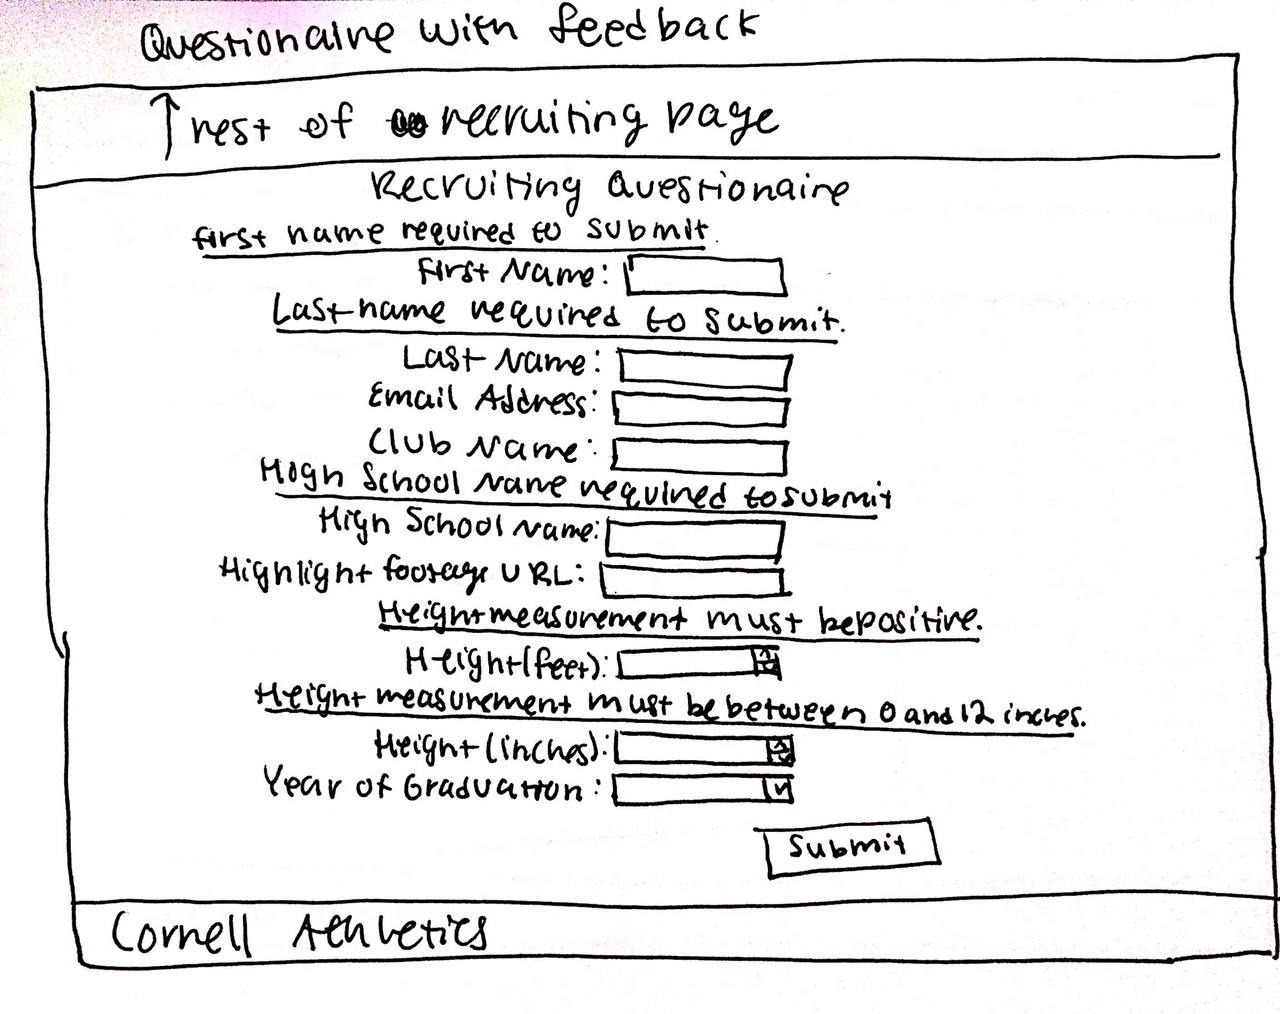 Questionaire with feedback
↑ rest of recruiting page
Recruiting Questionaire
first name required to submit.
First Name:
Last name required to submit.
Last Name:
Email Address:
Club Name:
High School Name required to submit
High School Name:
Highlight footage URL:
Height measurement must be positive.
Height (feet):
Height measurement must be between 0 and 12 inches.
Height (inches):
Year of Graduation:
Submit
Cornell Athletics